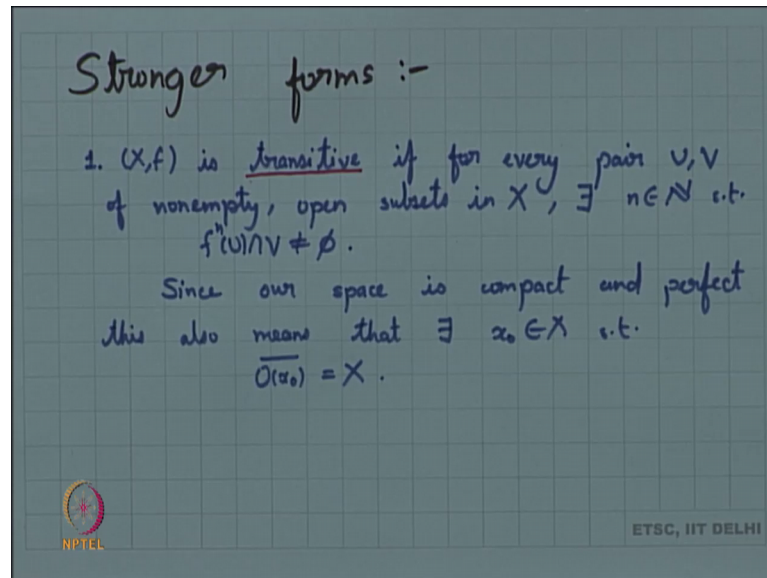 Stronger forms :-
1. (X,f) is transitive if for every pair U,V
of nonempty, open subsets in X, ∃ n∈N s.t.
fⁿ(U)∩V ≠ ∅.
Since our space is compact and perfect
this also means that ∃ x₀ ∈X s.t.
\overline{O(x₀)} = X.
NPTEL
ETSC, IIT DELHI